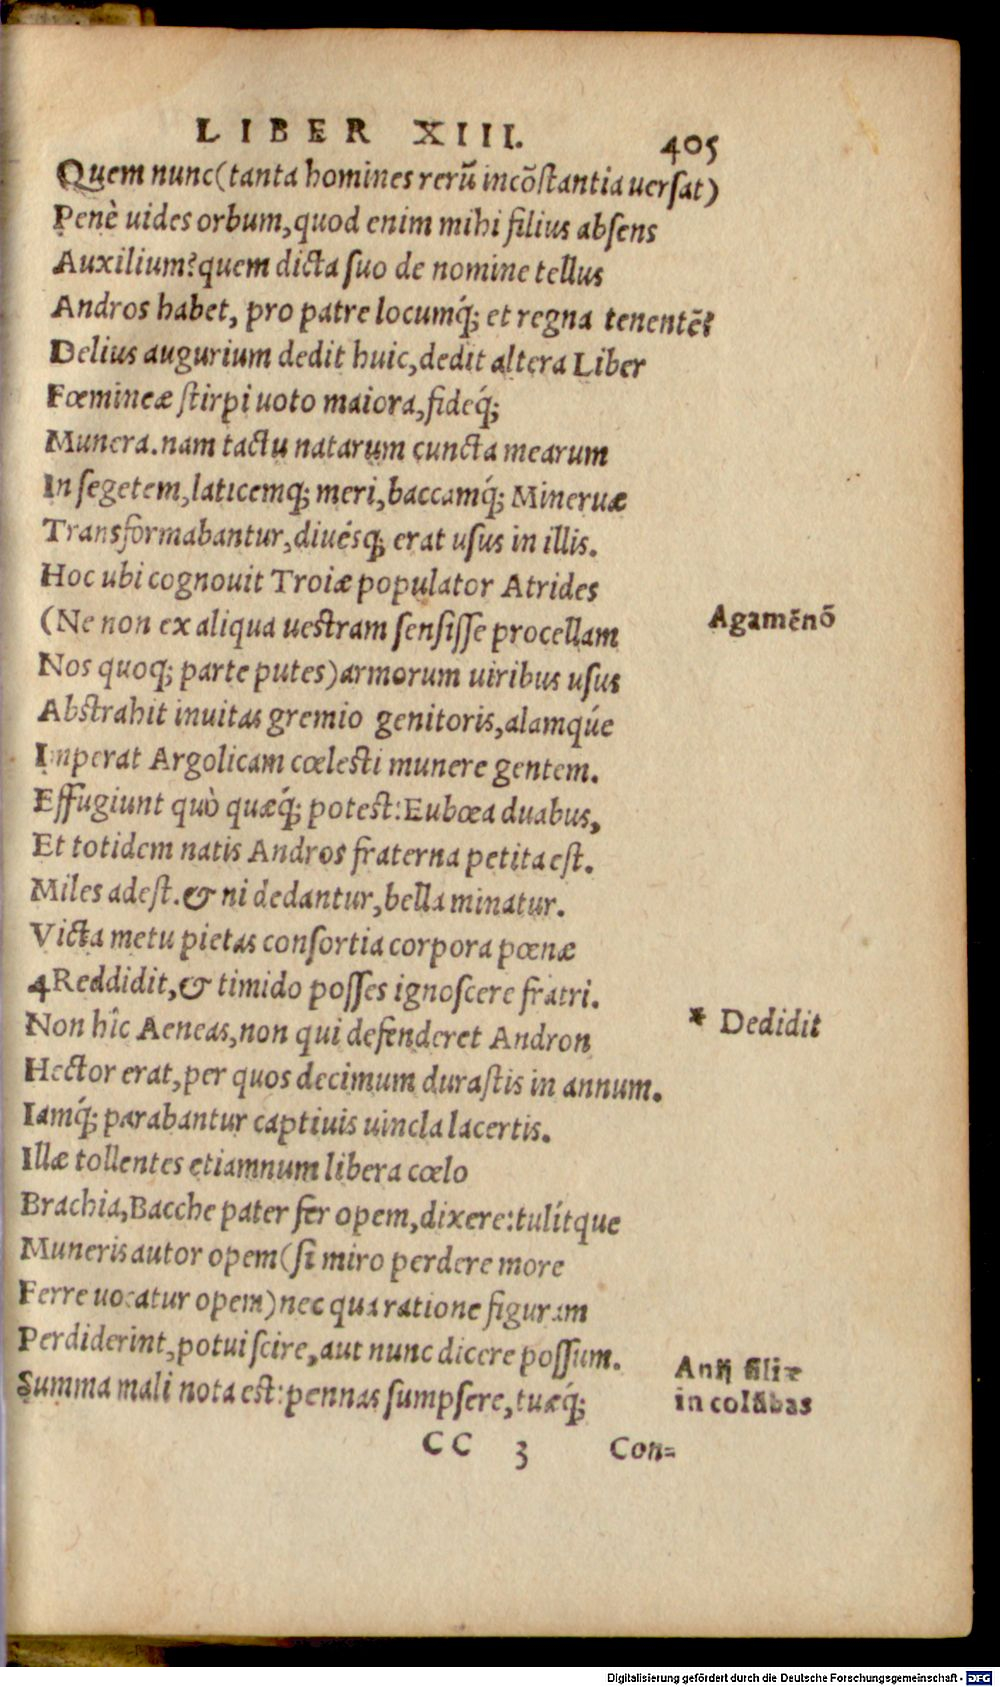 LIBER XIII. 405
Quem nunc(tanta homines rerū incōstantia uersat)
Penè uides orbum, quod enim mihi filius absens
Auxilium? quem dicta suo de nomine tellus
Andros habet, pro patre locumq́; et regna tenentē?
Delius augurium dedit huic, dedit altera Liber
Fœmineæ stirpi uoto maiora, fideq́;
Munera. nam tactu natarum cuncta mearum
In segetem, laticemq; meri, baccamq́; Mineruæ
Transformabantur, diuésq; erat usus in illis.
Hoc ubi cognouit Troiæ populator Atrides
Agamēnō
(Ne non ex aliqua uestram sensisse procellam
Nos quoq; parte putes) armorum uiribus usus
Abstrahit inuitas gremio genitoris, alantqúe
Imperat Argolicam cœlesti munere gentem.
Effugiunt quò quæq́; potest: Eubœa duabus,
Et totidem natis Andros fraterna petita est.
Miles adest. & ni dedantur, bella minatur.
Victa metu pietas consortia corpora pœnæ
4Reddidit, & timido posses ignoscere fratri.
* Dedidit
Non hîc Aeneas, non qui defenderet Andron
Hector erat, per quos decimum durastis in annum.
Iamq́; parabantur captiuis uincla lacertis.
Illæ tollentes etiamnum libera cœlo
Brachia, Bacche pater fer opem, dixere: tulítque
Muneris autor opem (si miro perdere more
Ferre uocatur opem) nec qua ratione figuram
Perdiderint, potui scire, aut nunc dicere possum.
Anij filiæ
Summa mali nota est: pennas sumpsere, tuæq́;
in colūbas
CC 3 Con=
Digitalisierung gefördert durch die Deutsche Forschungsgemeinschaft - DFG